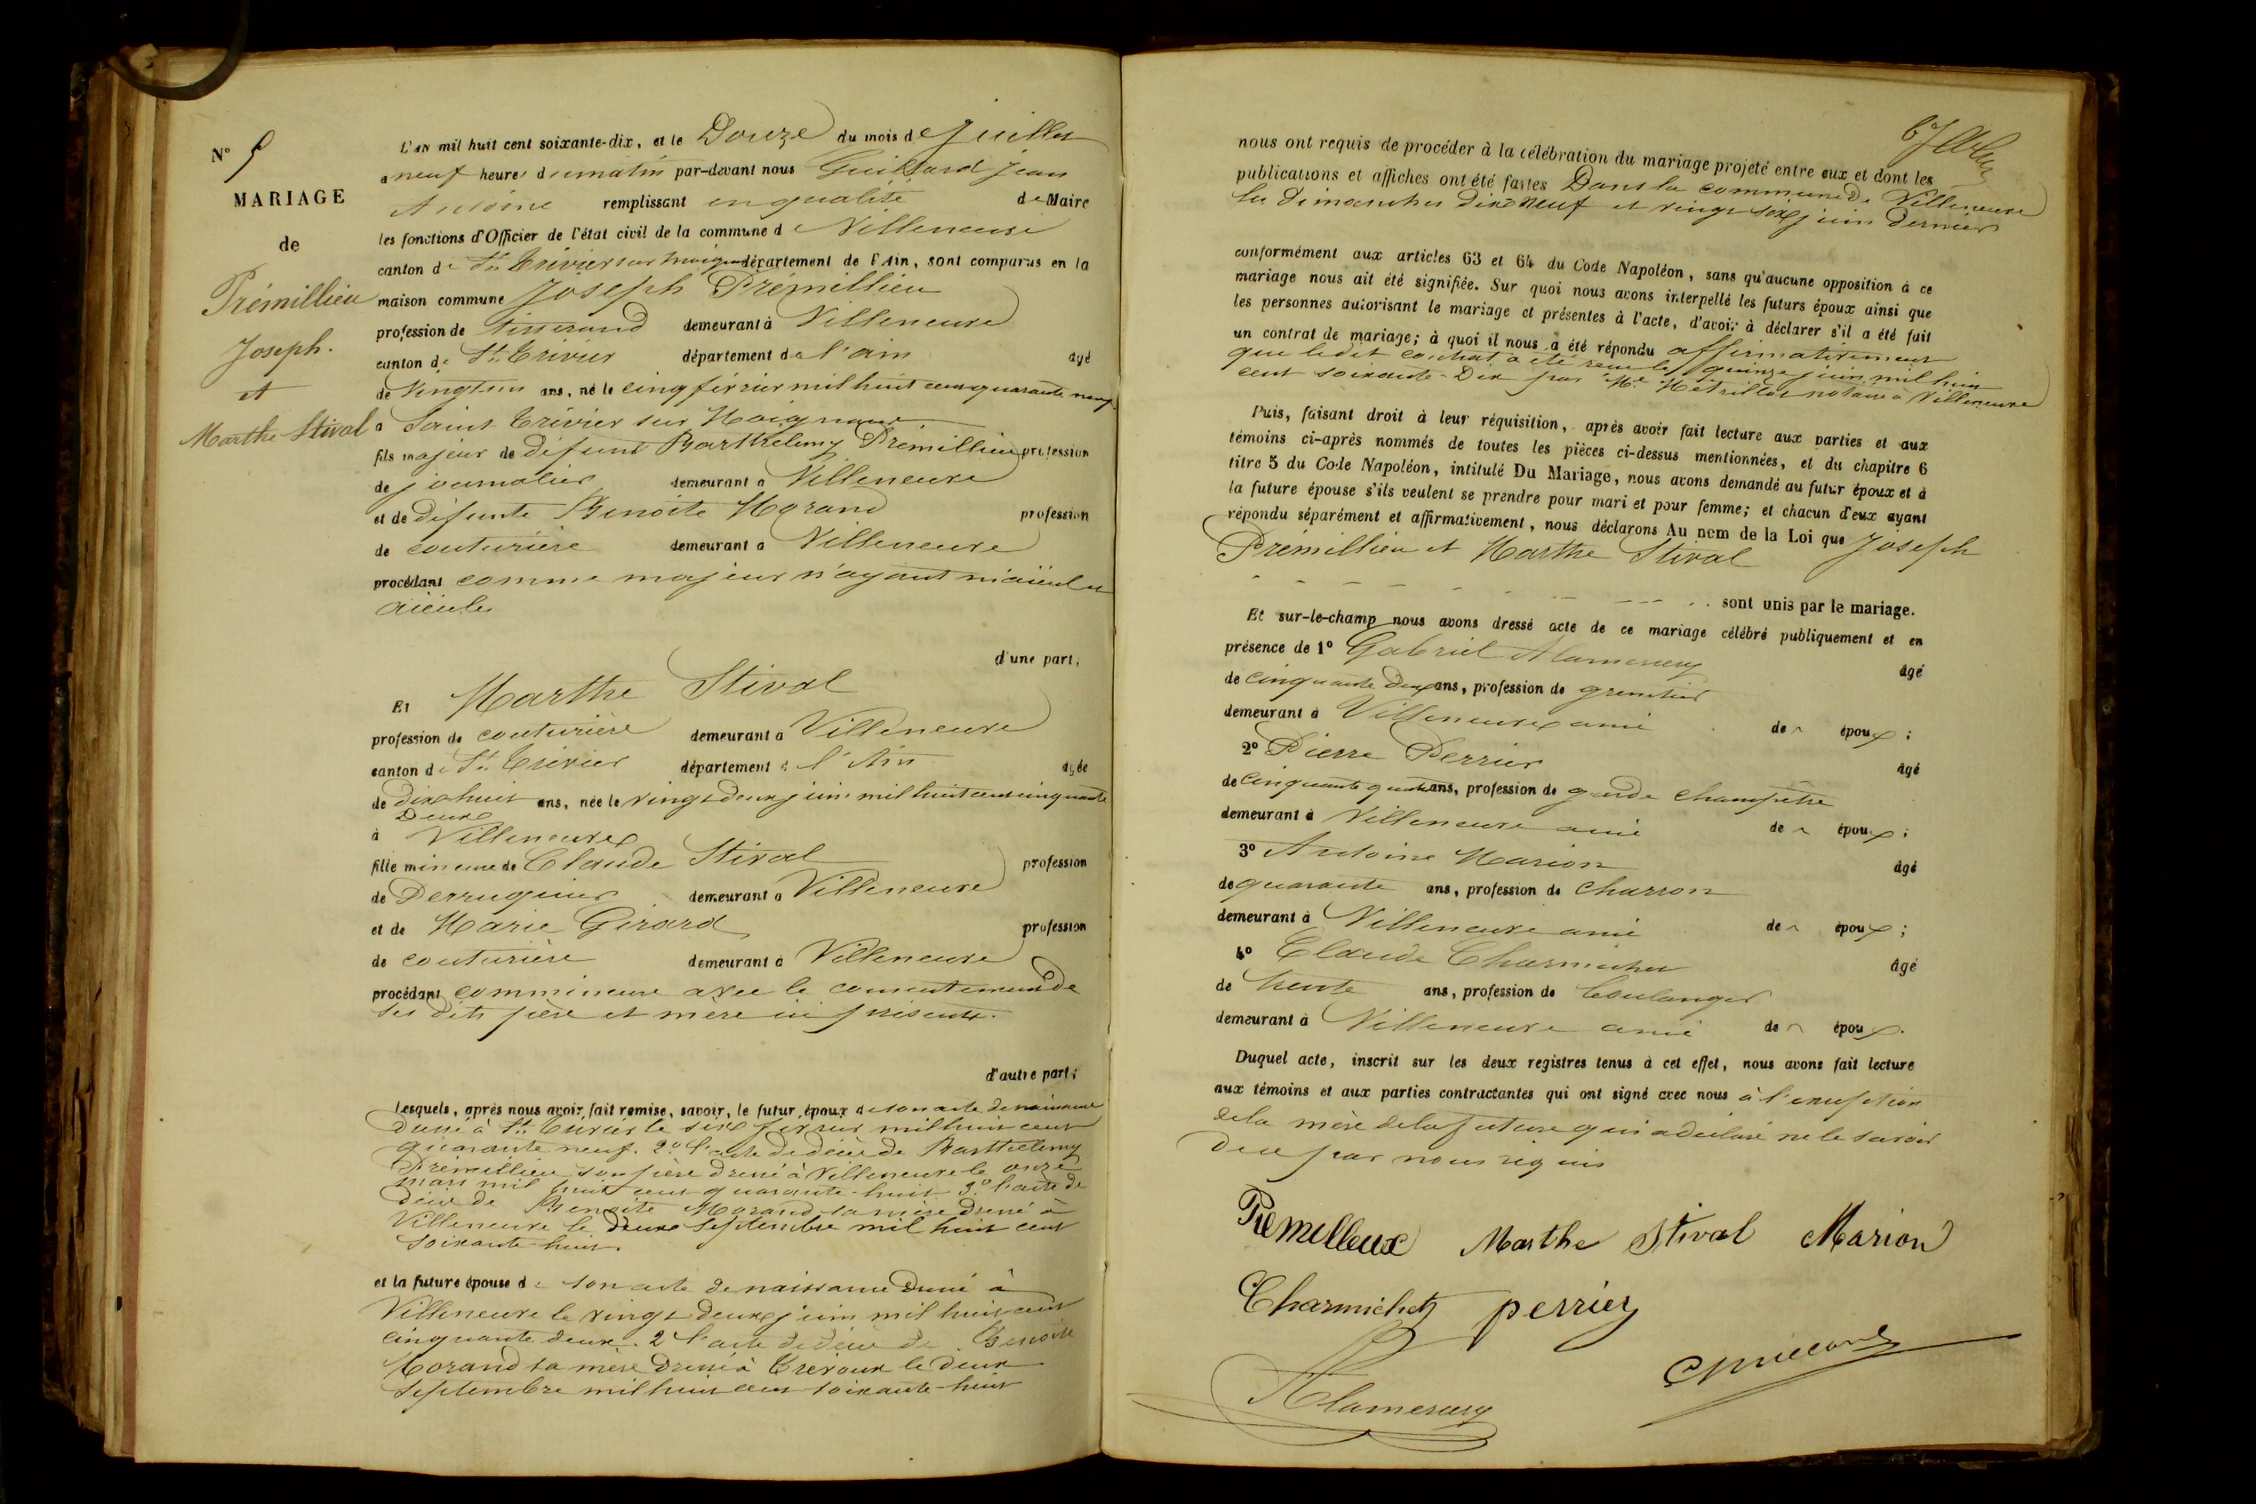 N° 5
MARIAGE
de
Prémillieu
Joseph.
et
Marthe Stival
L'an mil huit cent soixante-dix, et le Douze du mois de Juillet
a neuf heures du matin par-devant nous Guillard Jean
Antoine remplissant en qualité de Maire
les fonctions d'Officier de l'état civil de la commune de Villeneuve
canton de St. Trivier sur Moignans département de l'Ain, sont comparus en la
maison commune Joseph Prémillieu
profession de tisserand demeurant à Villeneuve
canton de St. Trivier département de l'ain âgé
de Vingt un ans, né le cinq février mil huit cent quarante neuf
a Saint Trivier sur Moignans
fils majeur de défunt Barthélemy Prémillieu profession
de journalier demeurant a Villeneuve
et de défunte Benoite Morand profession
de couturière demeurant a Villeneuve
procédant comme majeur n'ayant ni aïeul ni
aïeule
d'une part;
Et Marthe Stival
profession de couturière demeurant a Villeneuve
canton de St. Trivier département de l'Ain agée
de dix huit ans, née le vingt deux juin mil huit cent cinquante
Deux
à Villeneuve
fille mineure de Claude Stival profession
de Perruquier demeurant a Villeneuve
et de Marie Girard profession
de couturière demeurant à Villeneuve
procédant comme mineure avec le consentement de
ses dits père et mère ici présents.
d'autre part;
Lesquels, après nous avoir fait remise, savoir, le futur époux de son acte de naissance
dressé à St. Trivier le six février mil huit cent
quarante neuf. 2° l'acte de décès de Barthélemy
Prémillieu son père dressé à Villeneuve le onze
mars mil huit cent quarante-huit 3° l'acte de
décès de Benoite Morand sa mère dressé à
Villeneuve le deux septembre mil huit cent
soixante-huit.
et la future épouse de son acte de naissance dressé à
Villeneuve le vingt deux juin mil huit cent
cinquante deux. 2 l'acte de décès de Benoite
Morand sa mère dressé à Trévoux le deux
septembre mil huit cent soixante-huit
nous ont requis de procéder à la célébration du mariage projeté entre eux et dont les
publications et affiches ont été faites Dans la commune de Villeneuve
les dimanches dix neuf et vingt six juin dernier
conformément aux articles 63 et 64 du Code Napoléon, sans qu'aucune opposition à ce
mariage nous ait été signifiée. Sur quoi nous avons interpellé les futurs époux ainsi que
les personnes autorisant le mariage et présentes à l'acte, d'avoir à déclarer s'il a été fait
un contrat de mariage; à quoi il nous a été répondu affirmativement
que ledit contrat a été reçu le quinze juin mil huit
cent soixante-Dix par Me. Métrillot notaire à Villeneuve
Puis, faisant droit à leur réquisition, après avoir fait lecture aux parties et aux
témoins ci-après nommés de toutes les pièces ci-dessus mentionnées, et du chapitre 6
titre 5 du Code Napoléon, intitulé Du Mariage, nous avons demandé au futur époux et à
la future épouse s'ils veulent se prendre pour mari et pour femme; et chacun d'eux ayant
répondu séparément et affirmativement, nous déclarons Au nom de la Loi que Joseph
Prémillieu et Marthe Stival
sont unis par le mariage.
Et sur-le-champ nous avons dressé acte de ce mariage célébré publiquement et en
présence de 1° Gabriel Alamercery âgé
de cinquante deux ans, profession de grenetier
demeurant à Villeneuve ami de époux;
2° Pierre Perrier âgé
de cinquante quatre ans, profession de garde champêtre
demeurant à Villeneuve ami de époux;
3° Antoine Marion âgé
de quarante ans, profession de charron
demeurant à Villeneuve ami de époux;
4° Claude Charmichet âgé
de trente ans, profession de boulanger
demeurant à Villeneuve ami de époux.
Duquel acte, inscrit sur les deux registres tenus à cet effet, nous avons fait lecture
aux témoins et aux parties contractantes qui ont signé avec nous à l'exception
de la mère de la future qui a déclaré ne le savoir
de ce par nous requis
Premilleux Marthe Stival Marion
Charmichet perrier
Alamercery